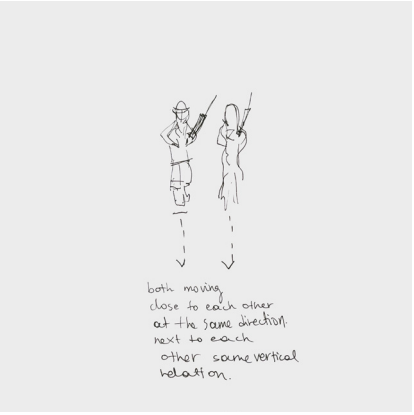 both moving
close to each other
at the same direction.
next to each
other same vertical
relation.